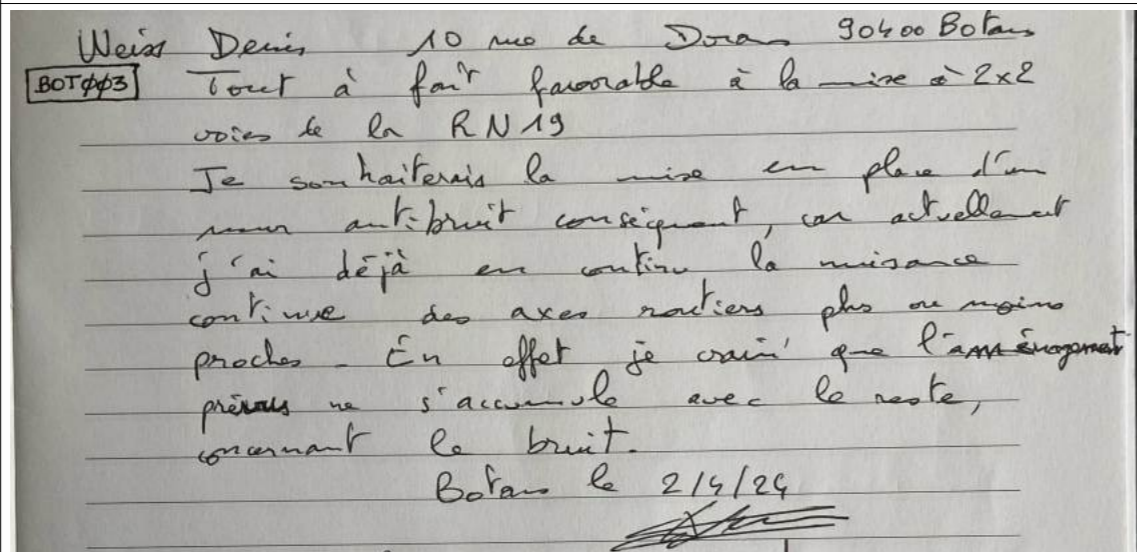 Weiss Denis 10 rue de Doran 90400 Botans
BOT003 Tout à fait favorable à la mise à 2x2
voies de la RN19
Je souhaiterais la mise en place d'un
mur anti-bruit conséquent, car actuellement
j'ai déjà en continu la nuisance
continue des axes routiers plus ou moins
proches - En effet je crains que l'aménagement
prévus ne s'accumule avec le reste,
concernant le bruit.
Botans le 2/4/24